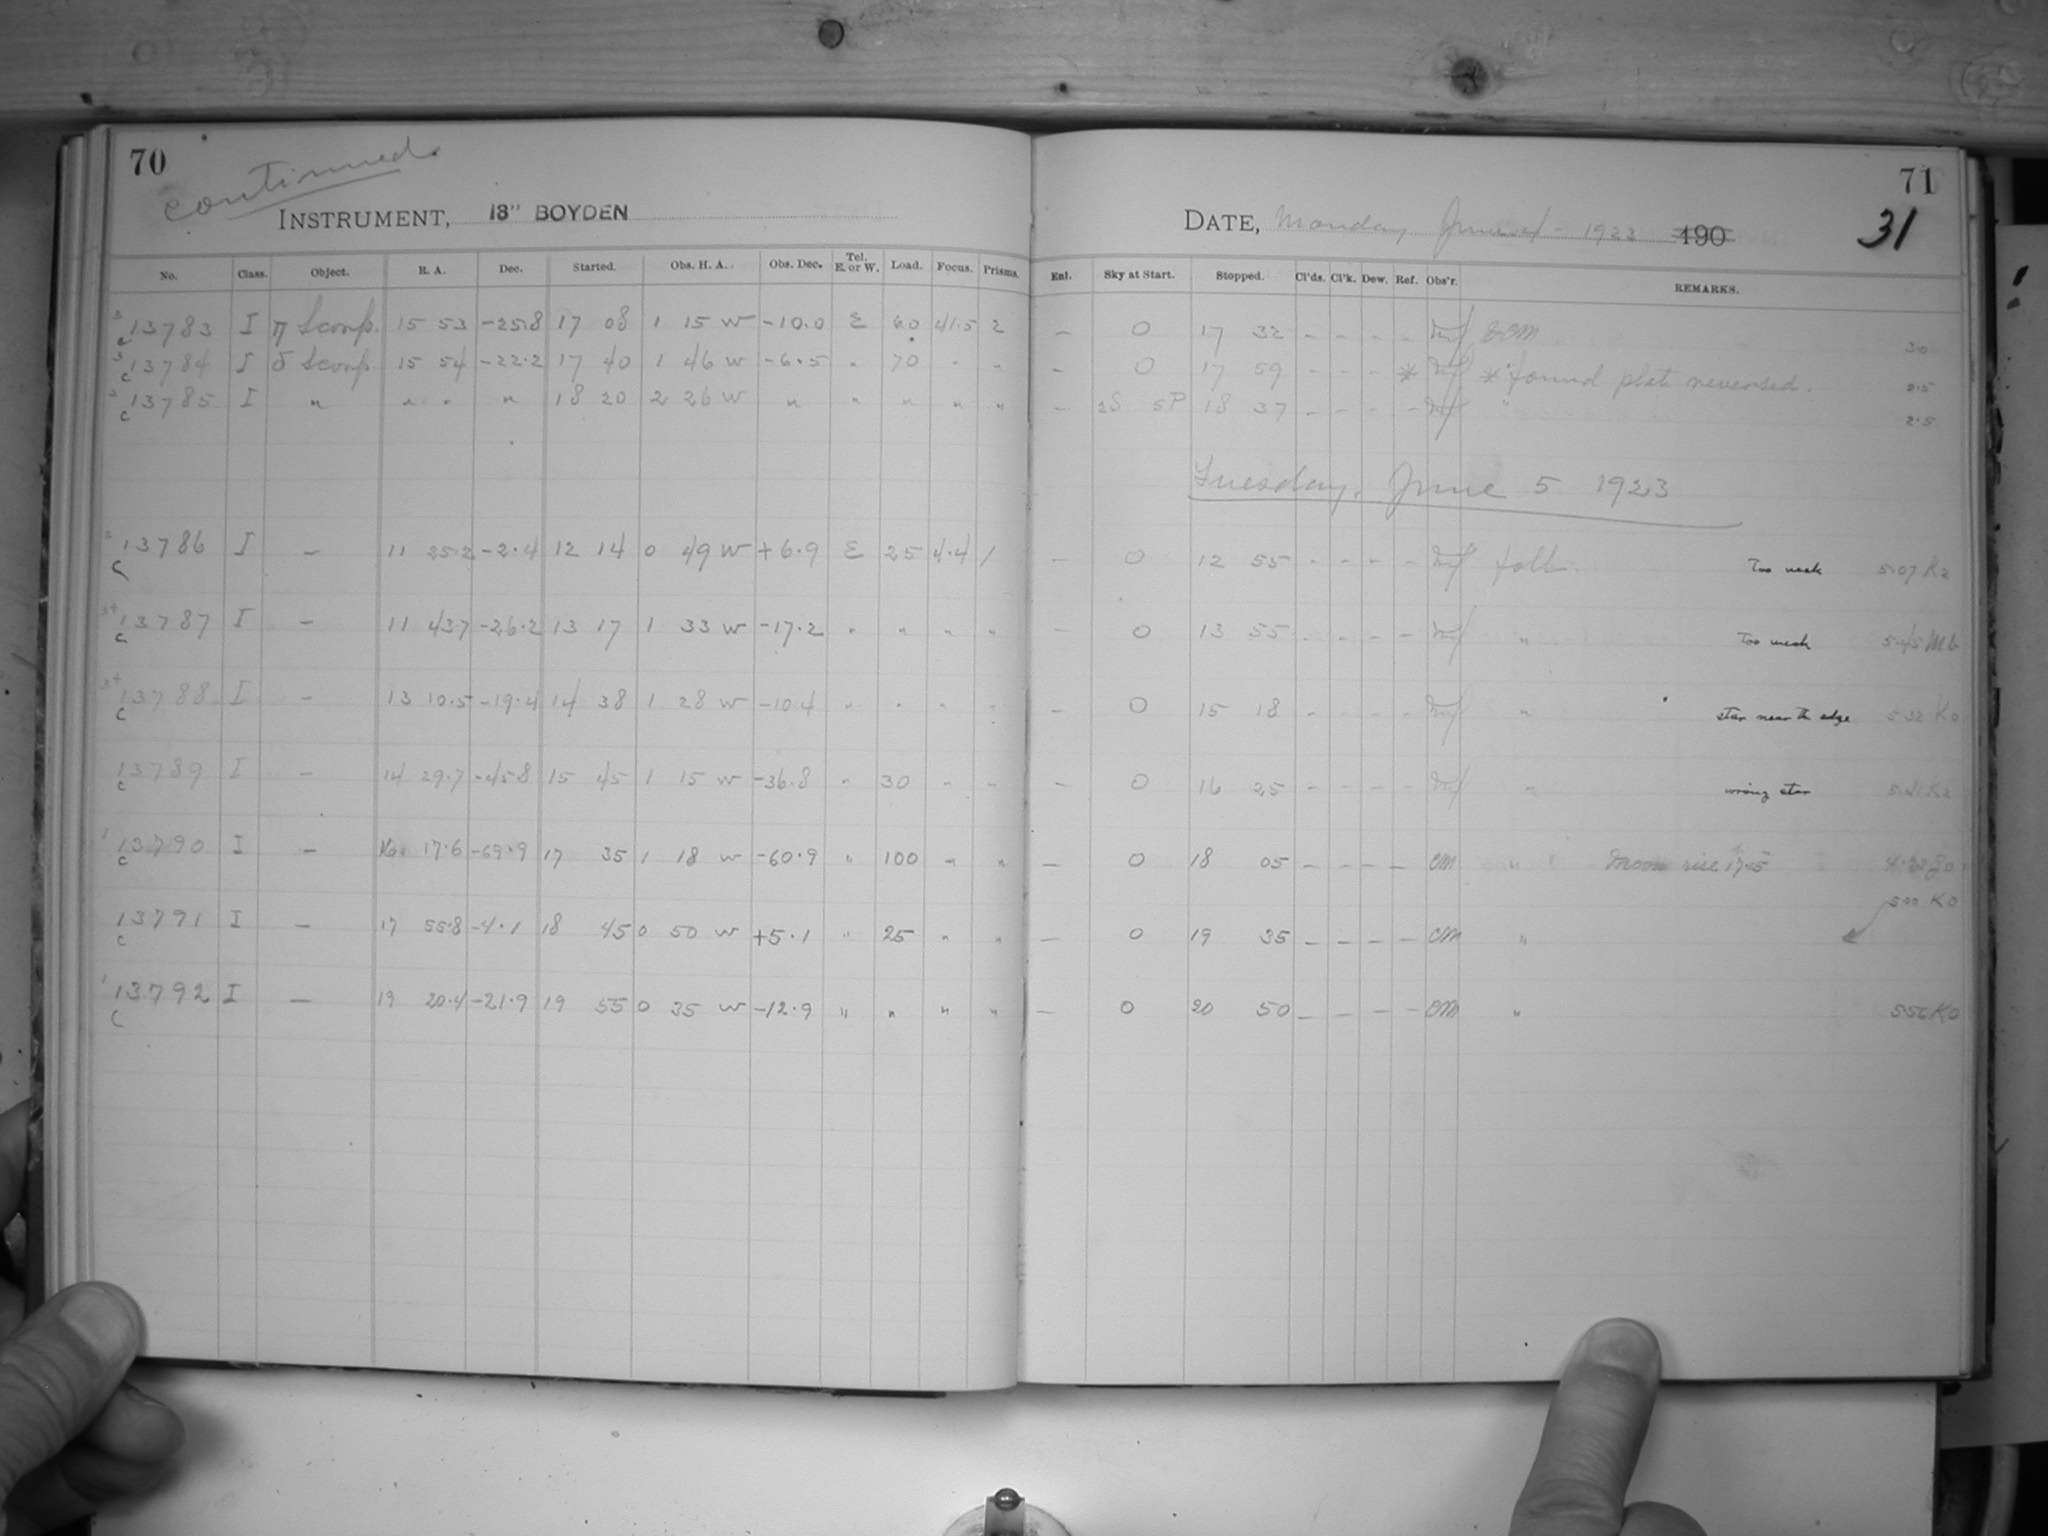 70
continued
INSTRUMENT, 13" BOYDEN
No. Class. Object. R. A. Dec. Started. Obs. H. A. Obs. Dec. Tel. E. or W. Load. Focus. Prisms.
3 c 13783 I π Scorp. 15 53 -25.8 17 08 1 15 W -10.0 E 60 41.5 2
3 c 13784 I δ Scorp. 15 54 -22.2 17 40 1 46 W -6.5 " 70 " "
c 13785 I " " " " 18 20 2 26 W " " " " "
c 13786 I — 11 25.2 -2.4 12 14 0 49 W +6.9 E 25 4.4 1
c 13787 I — 11 43.7 -26.2 13 17 1 33 W -17.2 " " " "
c 13788 I — 13 10.5 -19.4 14 38 1 28 W -10.4 " " " "
c 13789 I — 14 29.7 -45.8 15 45 1 15 W -36.8 " 30 " "
1 c 13790 I — 16 17.6 -69.9 17 35 1 18 W -60.9 " 100 " "
c 13791 I — 17 55.8 -4.1 18 45 0 50 W +5.1 " 25 " "
1 c 13792 I — 19 20.4 -21.9 19 55 0 35 W -12.9 " " " "
71
31
DATE, Monday June 4 - 1923 190
Enl. Sky at Start. Stopped. Cl'ds. Cl'k. Dew. Ref. Obs'r. REMARKS.
— 0 17 32 - - - - 30
— 0 17 59 - - - * * found plate reversed. 2.5
— 2S 5P 18 37 - - - - 2.5
Tuesday, June 5 1923
— 0 12 55 - - - - Too weak 5.07 K2
— 0 13 55 - - - - " Too weak 5.45 Mb
— 0 15 18 - - - - " star near the edge 5.32 K0
— 0 16 25 - - - - " wrong star 5.41 K2
— 0 18 05 - - - - CM " Moon rise 17.45
5.00 K0
— 0 19 35 - - - - CM "
— 0 20 50 - - - - CM " 5.56 K0